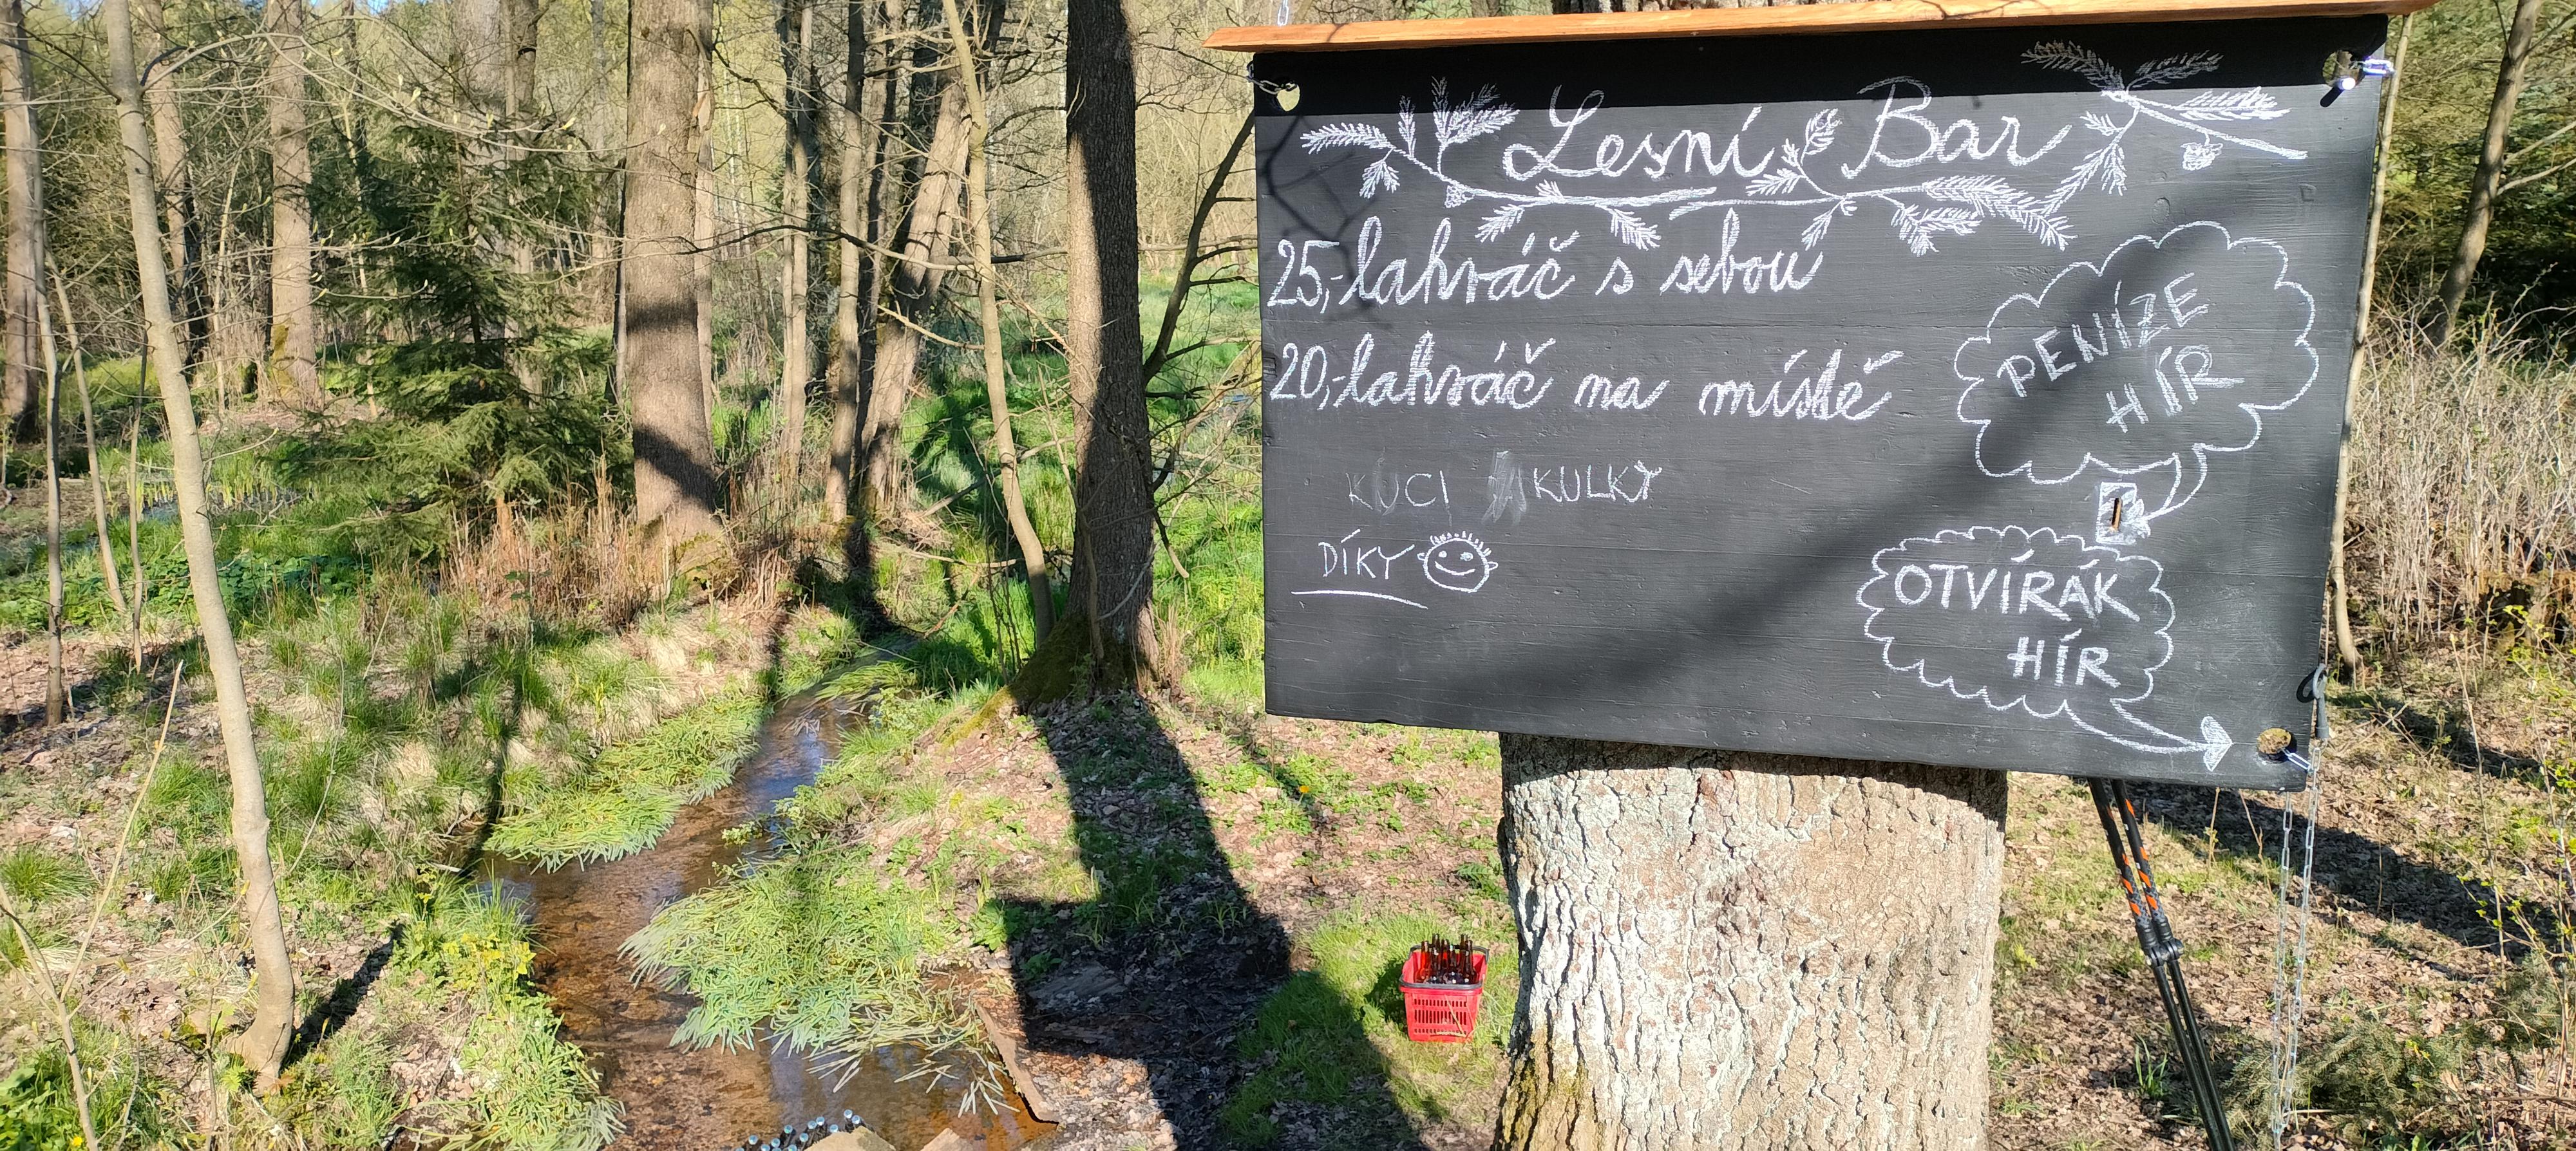 Lesní Bar
25,- lahváč s sebou
20,- lahváč na místě
PENÍZE
HÍR
KUCI KULKY
DÍKY
OTVÍRÁK
HÍR